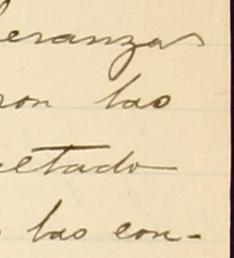 eranzas
ron las
ultado
las con-